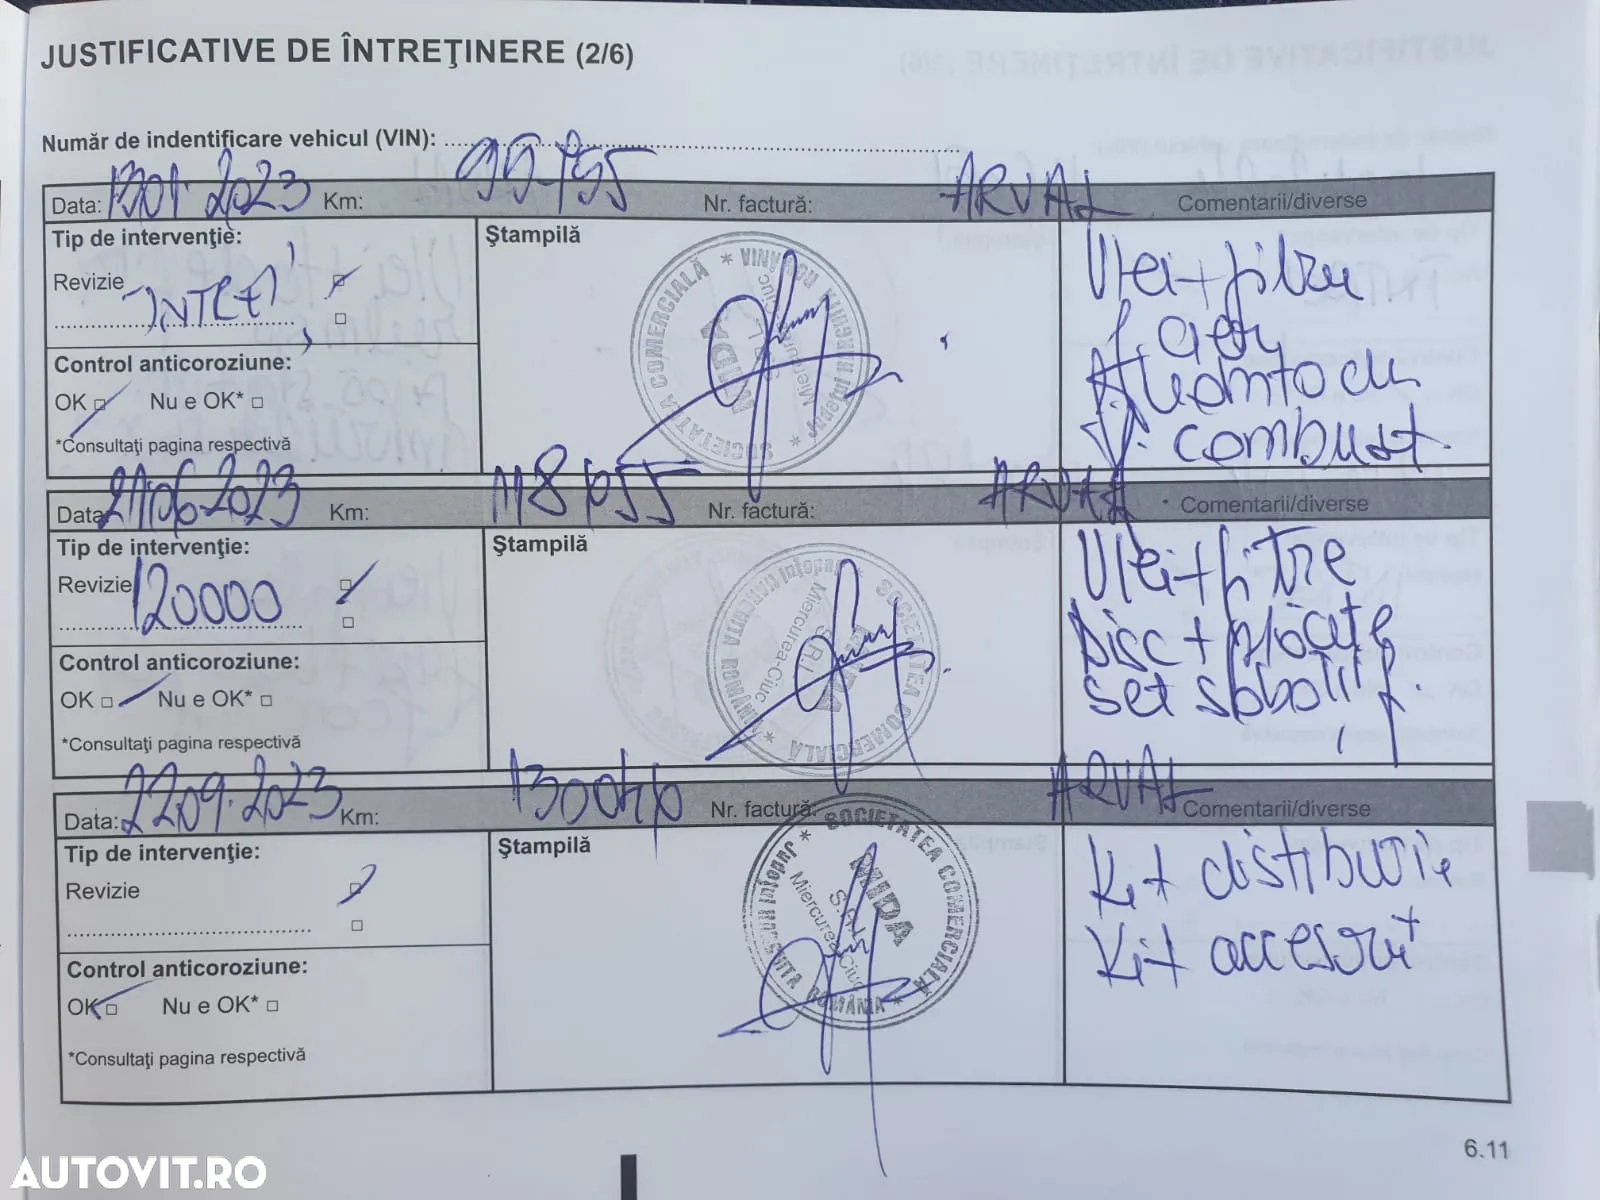 JUSTIFICATIVE DE ÎNTREŢINERE (2/6)
Număr de indentificare vehicul (VIN):
Data: 1301.2023 Km: 99.795 Nr. factură: ARVAL Comentarii/diverse
Tip de intervenţie:
Ştampilă
Revizie
Control anticoroziune:
OK Nu e OK*
*Consultaţi pagina respectivă
SOCIETATEA COMERCIALĂ * ROMÂNIA
MIDA
S.R.L.
Miercurea-Ciuc
Ulei+filtru
f. aer
combust.
Data 21.06.2023 Km: 118 055 Nr. factură: ARVAL Comentarii/diverse
Tip de intervenţie:
Ştampilă
Revizie 120000
Control anticoroziune:
OK Nu e OK*
*Consultaţi pagina respectivă
SOCIETATEA COMERCIALĂ * ROMÂNIA
S.R.L.
Miercurea-Ciuc
Ulei+filtre
Disc + plăcuțe
set saboți
Data: 2209.2023 Km: Nr. factură: ARVAL Comentarii/diverse
Tip de intervenţie:
Ştampilă
Revizie
Control anticoroziune:
OK Nu e OK*
*Consultaţi pagina respectivă
SOCIETATEA COMERCIALĂ * ROMÂNIA
MIDA
S.R.L.
Miercurea-Ciuc
Kit distributie
Kit accesorii
6.11
AUTOVIT.RO